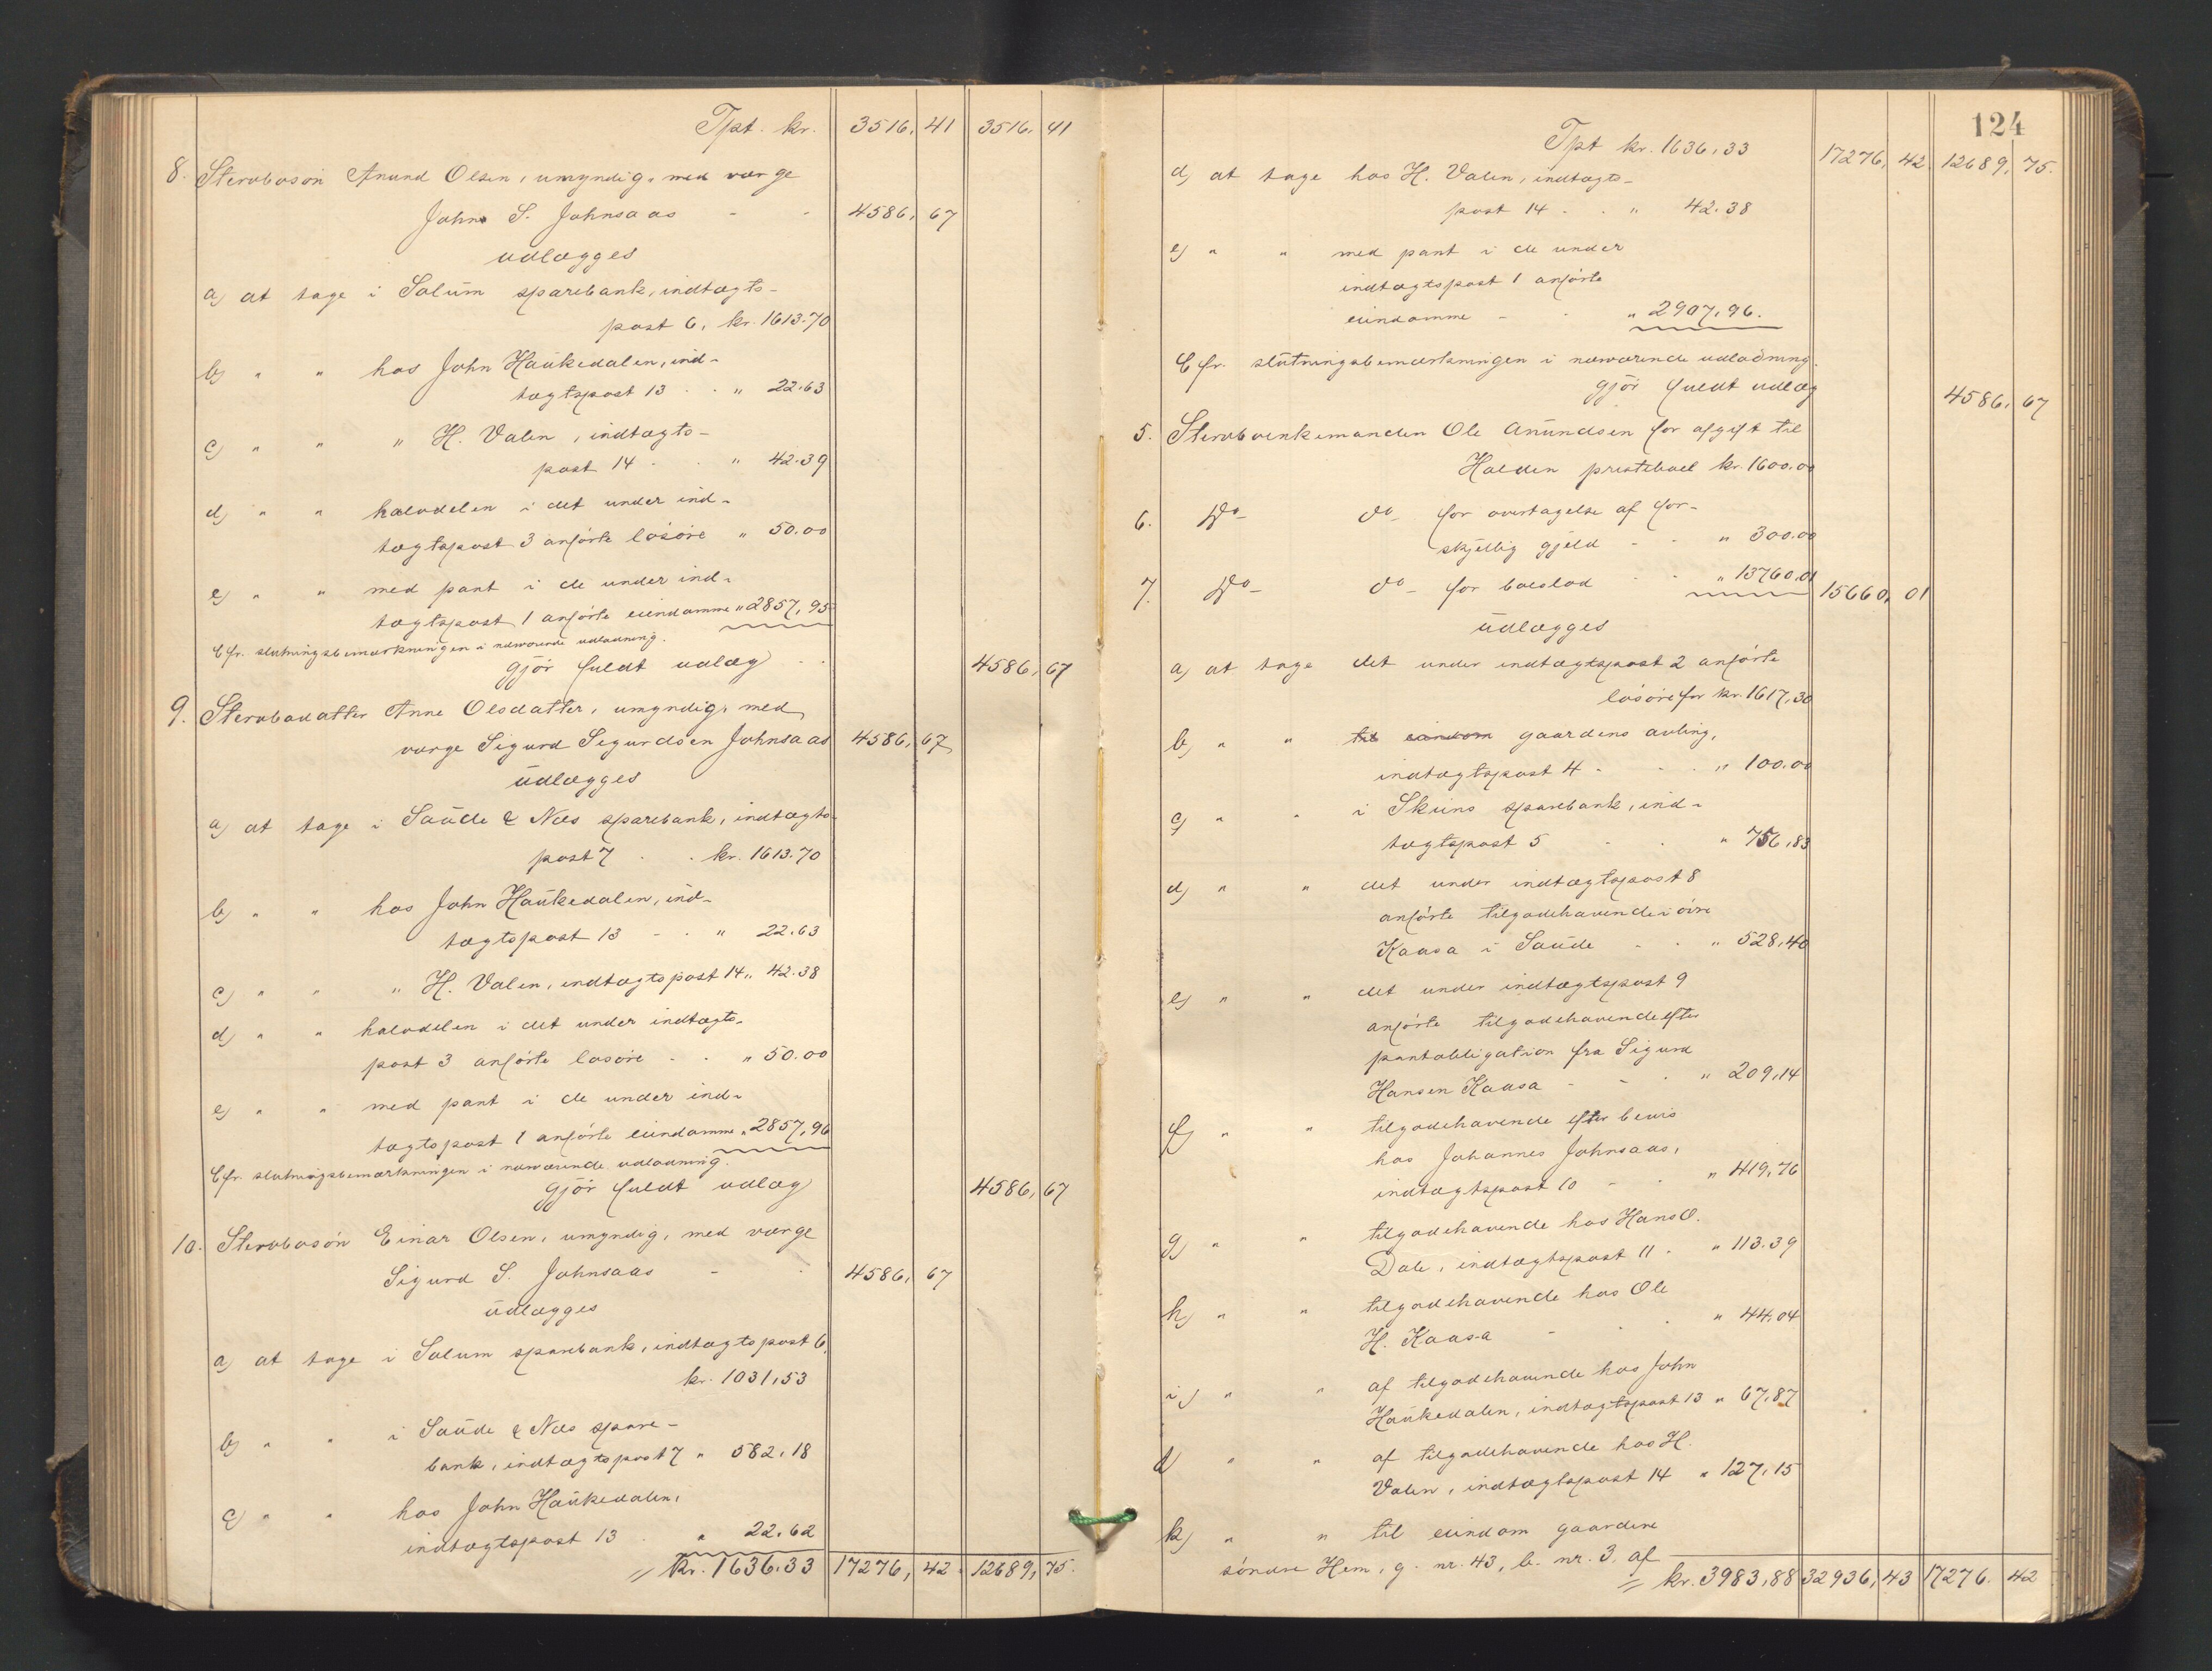 Tpt. kr. 3516, 41 3516, 41
8. Stervbosön Anund Olsen, umyndig, med værge
John S. Johnsaas - - 4586, 67
udlægges
a) at tage i Solum sparebank, indtægts-
post 6, kr. 1613.70
b) " " hos John Haukedalen, ind-
tægtspost 13 . . " 22.63
c) " " " H. Valen, indtægts-
post 14 . . " 42.39
d) " " halvdelen i det under ind-
tægtspost 3 anförte lösöre " 50.00
e) " " med pant i de under ind-
tægtspost 1 anförte eiendomme " 2857,95
Cfr. slutningsbemærkningen i nærværende udlodning.
gjör fuldt udlæg . . 4586, 67
9. Stervbodatter Anne Olsdatter, umyndig, med
værge Sigurd Sigurdsen Johnsaas 4586, 67
udlægges
a) at tage i Saude & Næs sparebank, indtægts-
post 7 . . kr. 1613.70
b) " " hos John Haukedalen, ind-
tægtspost 13 - . " 22.63
c) " " " H. Valen, indtægtspost 14 " 42.38
d) " " halvdelen i det under indtægts-
post 3 anförte lösöre - . " 50.00
e) " " med pant i de under ind-
tægtspost 1 anförte eiendomme " 2857,96
Cfr. slutningsbemærkningen i nærværende udlodning.
gjör fuldt udlæg 4586, 67
10. Stervbosön Einar Olsen, umyndig, med værge
Sigurd S. Johnsaas - . 4586, 67
udlægges
a) at tage i Solum sparebank, indtægtspost 6,
kr. 1031,53
b) " " i Saude & Næs spare-
bank, indtægtspost 7 " 582,18
c) " " hos John Haukedalen,
indtægtspost 13 " 22,62
= kr. 1636.33 17276, 42. 12689, 75.
124
Tpt kr. 1636,33 17276, 42. 12689, 75.
d) at tage hos H. Valen, indtægts-
post 14 . . " 42.38
e) " " med pant i de under
indtægtspost 1 anförte
eiendomme - . " 2907,96.
Cfr. slutningsbemærkningen i nærværende udlodning.
gjör fuldt udlæg 4586, 67
5. Stervboenkemanden Ole Anundsen for afgift til
Holden presteboel kr. 1600.00
6. Do- do- for overtagelse af for-
skjellig gjeld - . " 300.00
7. Do- do- for boeslod . . " 13760.01 15660, 01
udlægges
a) at tage det under indtægtspost 2 anförte
lösöre for kr. 1617,30
b) " " til eiendom gaardens avling,
indtægtspost 4 - . . " 100.00
c) " " i Skiens sparebank, ind-
tægtspost 5 . . " 756,83
d) " " det under indtægtspost 8
anförte tilgodehavende i övre
Kaasa i Saude - . " 528,40
e) " " det under indtægtspost 9
anförte tilgodehavende efter
pantobligation fra Sigurd
Hansen Kaasa - - . " 209,14
f) " " tilgodehavende efter bevis
hos Johannes Johnsaas,
indtægtspost 10 - . " 419,76
g) " " tilgodehavende hos Hans O.
Dale, indtægtspost 11 . " 113.39
h) " " tilgodehavende hos Ole
H. Kaasa - . . " 44,04
i) " " af tilgodehavende hos John
Haukedalen, indtægtspost 13 " 67,87
j) " " af tilgodehavende hos H.
Valen, indtægtspost 14 " 127,15
k) " " til eiendom gaardene
söndre Hem, g. nr. 43, b. nr. 3, af
= kr. 3983,88 32936, 43 17276. 42